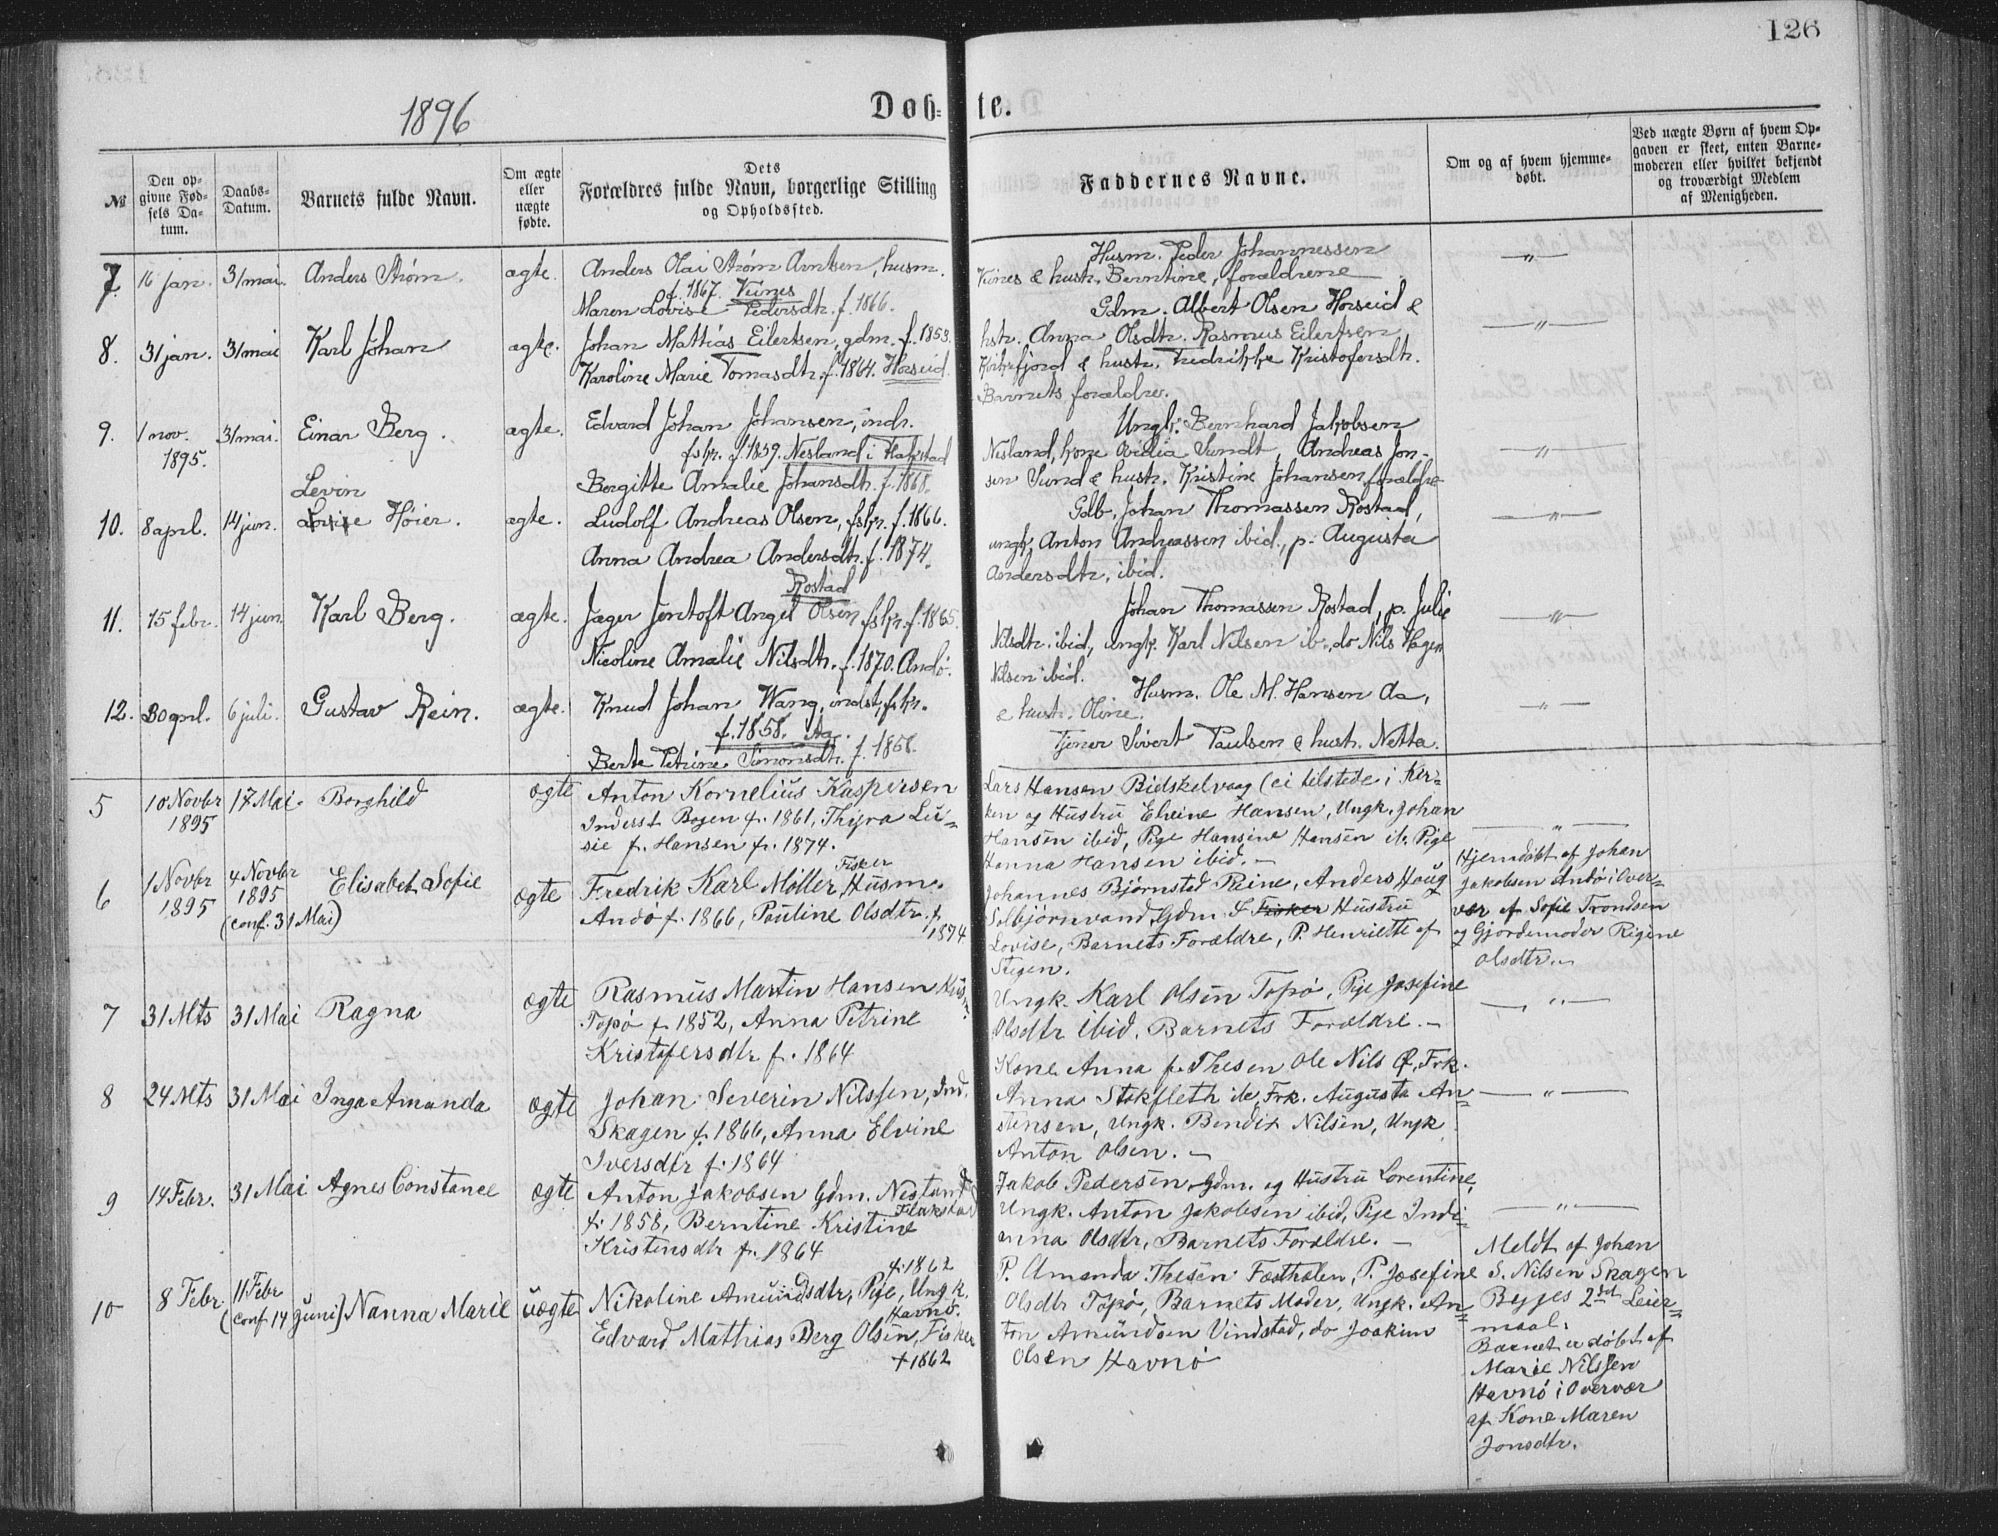 126
1896
Døb-te.
№
Den opgivne Fødsels Datum.
Daabs-Datum.
Barnets fulde Navn.
Om ægte eller uægte fødte.
Dets Forældres fulde Navn, borgerlige Stilling og Opholdssted.
Faddernes Navne.
Om og af hvem hjemmedøbt.
Ved uægte Børn af hvem Opgaven er skeet, enten Barnemoderen eller hvilket bekjendt og troværdigt Medlem af Menigheden.
7. 16 jan. 31 mai. Anders Strøm. ægte.
Anders Olai Strøm Arntsen, husm.
f. 1867. Kunes
Maren Lovise Pedersdtr. f. 1866.
Husm. Peder Johannessen
Kunes & hustr. Berntine, forældrene
—"—
8. 31 jan. 31 mai Karl Johan ægte.
Johan Mattias Eilertsen, gdm. f. 1853.
Karoline Marie Tomasdtr. f. 1864. Horseid.
Gdm. Albert Olsen Horseid &
hstr. Anna Olsdtr. Rasmus Eilertsen
Kirkefjord & hustr. Fredrikke Kristofersdtr.
Barnets forældre.
—"—
9. 1 nov. 1895. 31 mai. Einar Berg. ægte.
Edvard Johan Johansen, indr.
fskr. f. 1859. Nesland i Flakstad
Bergitte Amalie Johansdtr. f. 1868.
Ungk. Bernhard Jakobsen
Nesland, kone Sundt, Andreas Jon-
sen Sund & hustr. Kristine Johansen, forældre
—"—
10. 8 apl. 14 jun. Levin Høier. ægte.
Ludolf Andreas Olsen, fskr. f. 1866.
Anna Andrea Andersdtr. f. 1874.
Rostad
Gdb. Johan Thomassen Rostad,
ungk. Anton Andreassen ibid., p. Augusta
Andersdtr, ibid.
—"—
11. 15 febr. 14 jun. Karl Berg. ægte.
Jæger Jentoft Angel Olsen fskr. f. 1865.
Nicoline Amalie Nilsdtr. f. 1870. Andø.
Johan Thomassen Rostad, p. Julie
Nilsdtr. ibid, ungk. Karl Nilsen ib., do Nils Hagen
Nilsen ibid.
—"—
12. 30 apl. 6 juli. Gustav Rein. ægte.
Knud Johan Wang, indst, fskr.
f. 1858. Aa.
Berte Petrine Simonsdtr. f. 1858.
Husm. Ole M. Hansen Aa,
& hustr. Oline.
Tjener Sivert Paulsen & hustr. Netta.
—"—
5 10 Novbr 1895 17 Mai. Borghild ægte
Anton Kornelius Kaspersen
Inderst Bogen f. 1861, Thyra Lu-
sie f. Hansen f. 1874.
Lars Hansen Bidskelvaag (ei tilstede i Kir-
ken og Hustru Eleine Hansen, Ungk. Johan
Hansen ibid, Pige Hansine Hansen ib. Pige
Hanna Hansen ibid. —
—"—
6 1 Novbr 1895 4 Novbr 1895 (conf. 31 Mai) Elisabet Sofie ægte
Fisker
Fredrik Karl Möller Husm.
Andø f. 1866, Pauline Olsdtr. f. 1874
Johannes Bjørnsted Reine, Anders Houg
Selbjørnvand, Gdm. & Fisker Hustru
Lovise, Barnets Forældre, P. Henriette af
Stegen.
Hjemdøbt af Johan
Jakobsen Andø i Over-
vær af Sofie Trondsen
og Gjordemoder Rigine
Olsdtr. —
7 31 Mts 31 Mai Ragna ægte
Rasmus Martin Hansen
Topø f. 1852, Anna Petrine
Kristofersdtr f. 1864
Ungk. Karl Olsen Topø, Pige Josefine
Olsdtr ibid. Barnets Forældre. —
—"—
8 24 Mts 31 Mai Inga Amanda ægte
Johan Severin Nilssen, Ind.
Skagen f. 1866, Anna Elvine
Iversdtr f. 1864
Kone Anna f. Thesen Ole Nils Frk.
Anna Stokfleth ib, Frk. Augusta An-
stensen, Ungk. Bendix Nilsen, Ungk
Anton Olsen. —
—"—
9 14 Febr. 31 Mai Agnes Constance ægte
Anton Jakobsen Gdm. Nesland Flakstad
f. 1858, Berntine Kristine
Kristensdtr f. 1864
Jakob Pedersen Gdm. og Hustru Lorentine,
Ungk. Anton Jakobsen ibid, Pige Indi-
anna Olsdtr, Barnets Forældre. —
—"—
10 8 Febr. 11 Febr (conf. 14 Juni) Nanna Marie uægte
f. 1862
Nikoline Amundsdtr, Pige, Ungk.
Havnø.
Edvard Mathias Berg Olsen, Fisker
f. 1862
P. Amanda Thesen Fasthalen, P. Josefine
Olsdtr Topø, Barnets Moder, Ungk. An-
ton Amundsen Vindstad, do Joakim
Olsen Havnø
Meldt af Johan
S. Nilsen Skagen
Begges 2det Leier-
maal.
Barnet er døbt af
Marie Nilssen
Havnø i Overvær
af Kone Maren
Jonsdtr.